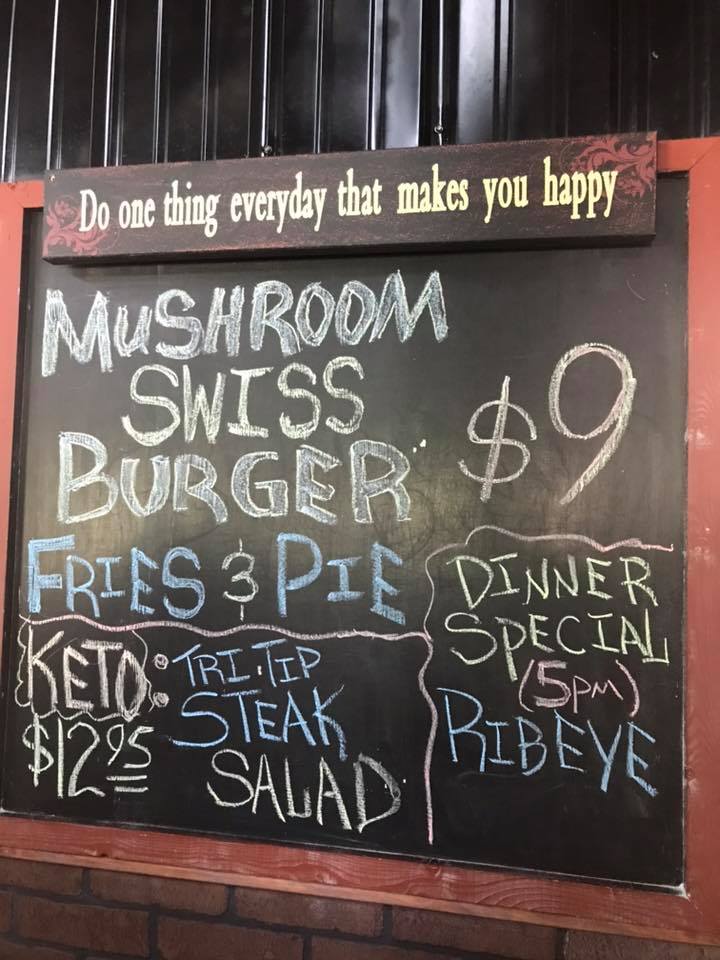 Do one thing everyday that makes you happy
MUSHROOM
SWISS
BURGER
$9
FRIES & PIE
KETO: TRI-TIP
STEAK
SALAD
$12.95
DINNER
SPECIAL
(5PM)
RIBEYE